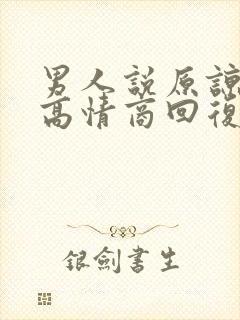 男人説原諒
高情商回復
銀劍書生